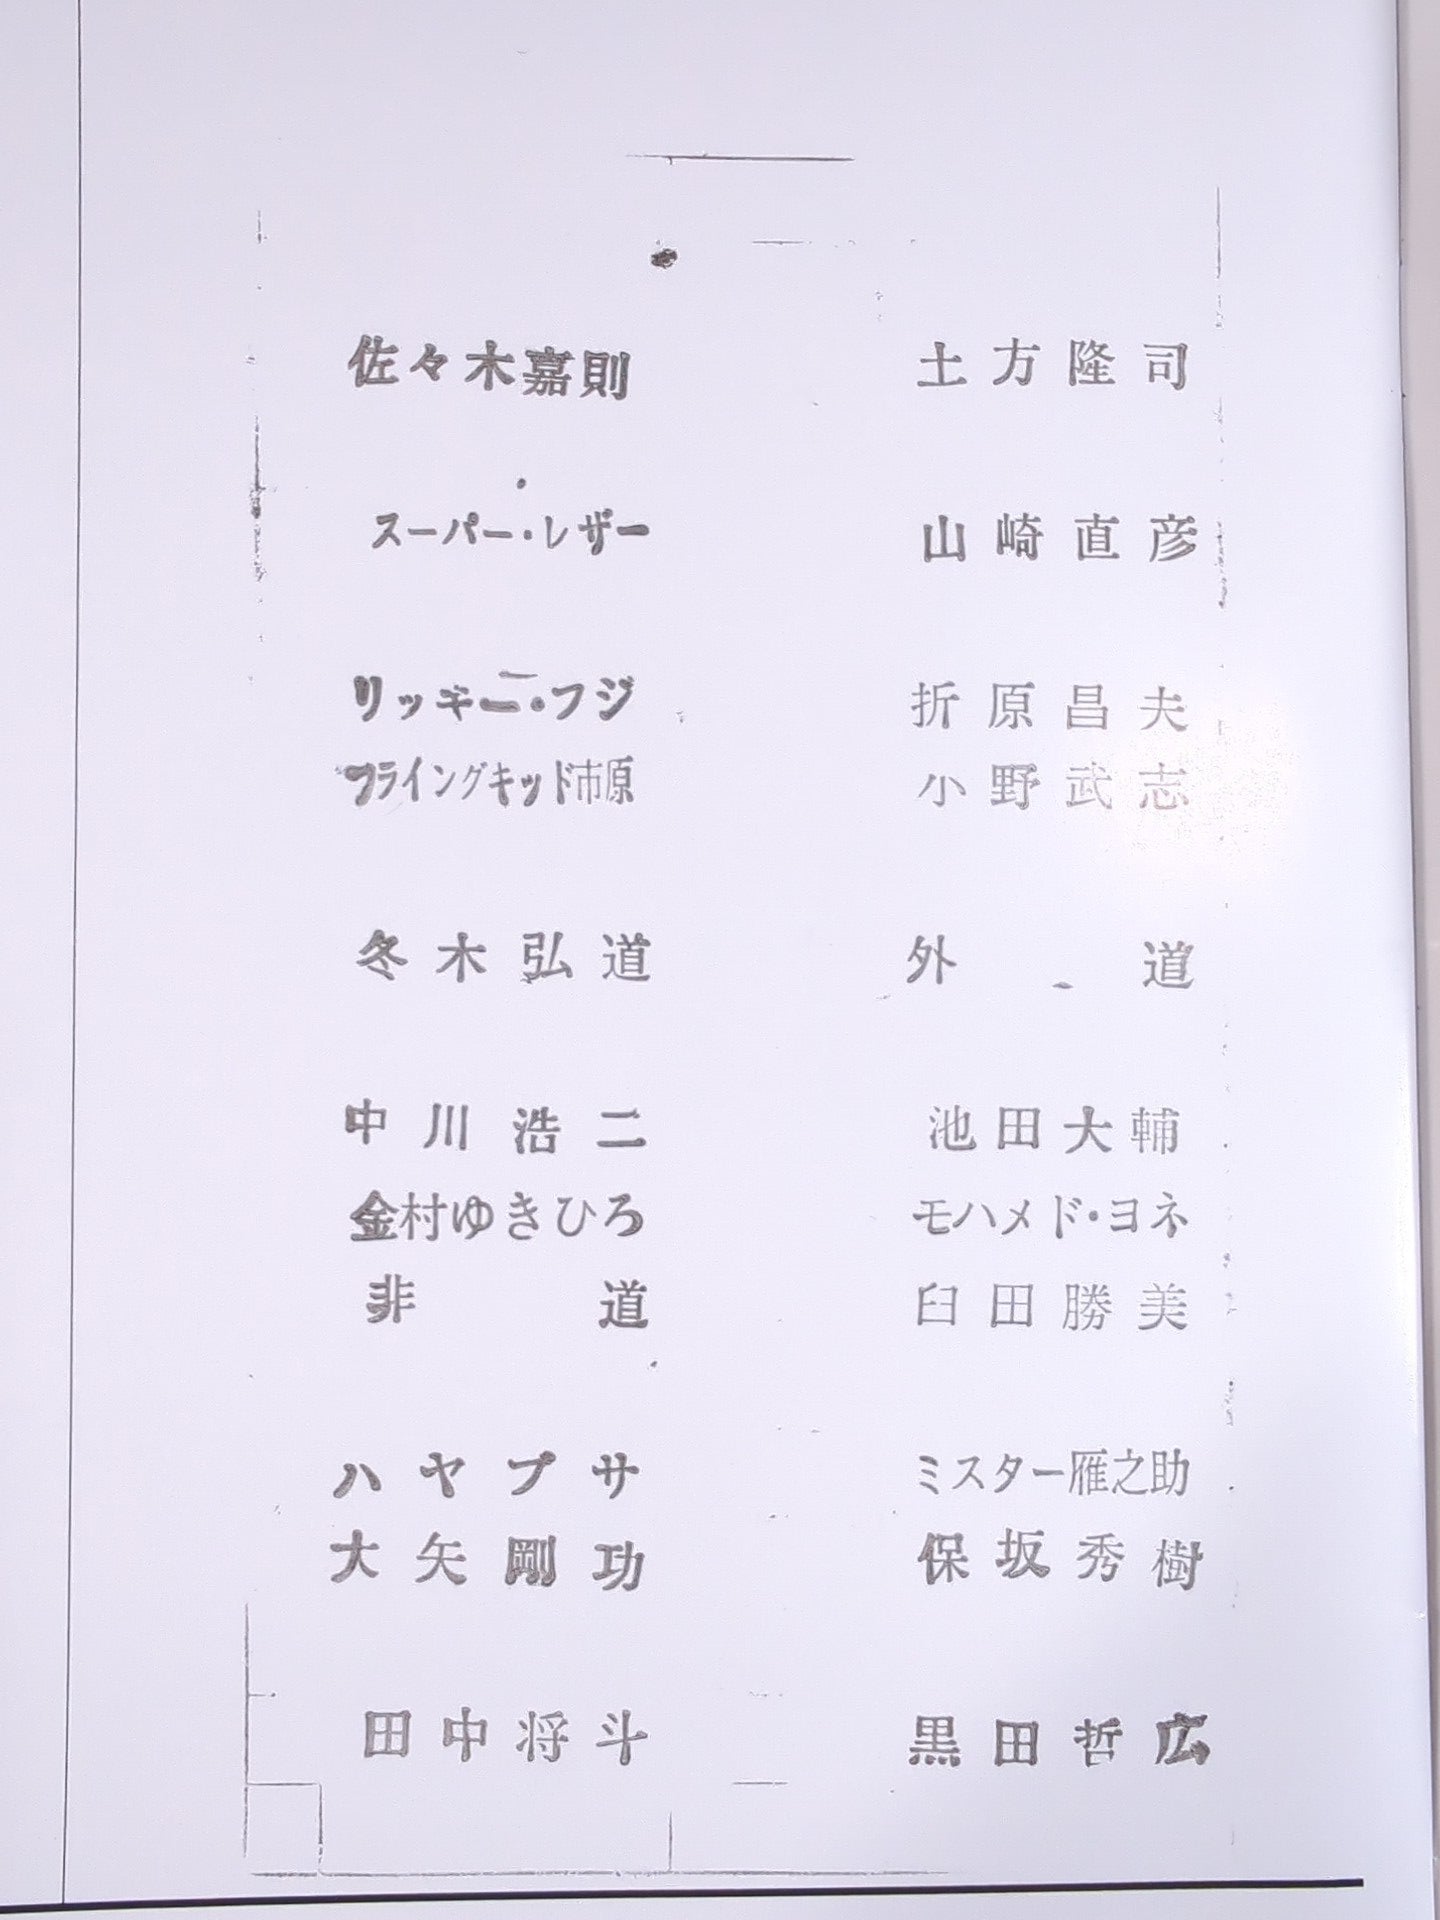 佐々木嘉則 土方隆司
スーパー・レザー 山崎直彦
リッキー・フジ 折原昌夫
フライングキッド市原 小野武志
冬木弘道 外道
中川浩二 池田大輔
金村ゆきひろ モハメド・ヨネ
非道 臼田勝美
ハヤブサ ミスター雁之助
大矢剛功 保坂秀樹
田中将斗 黒田哲広